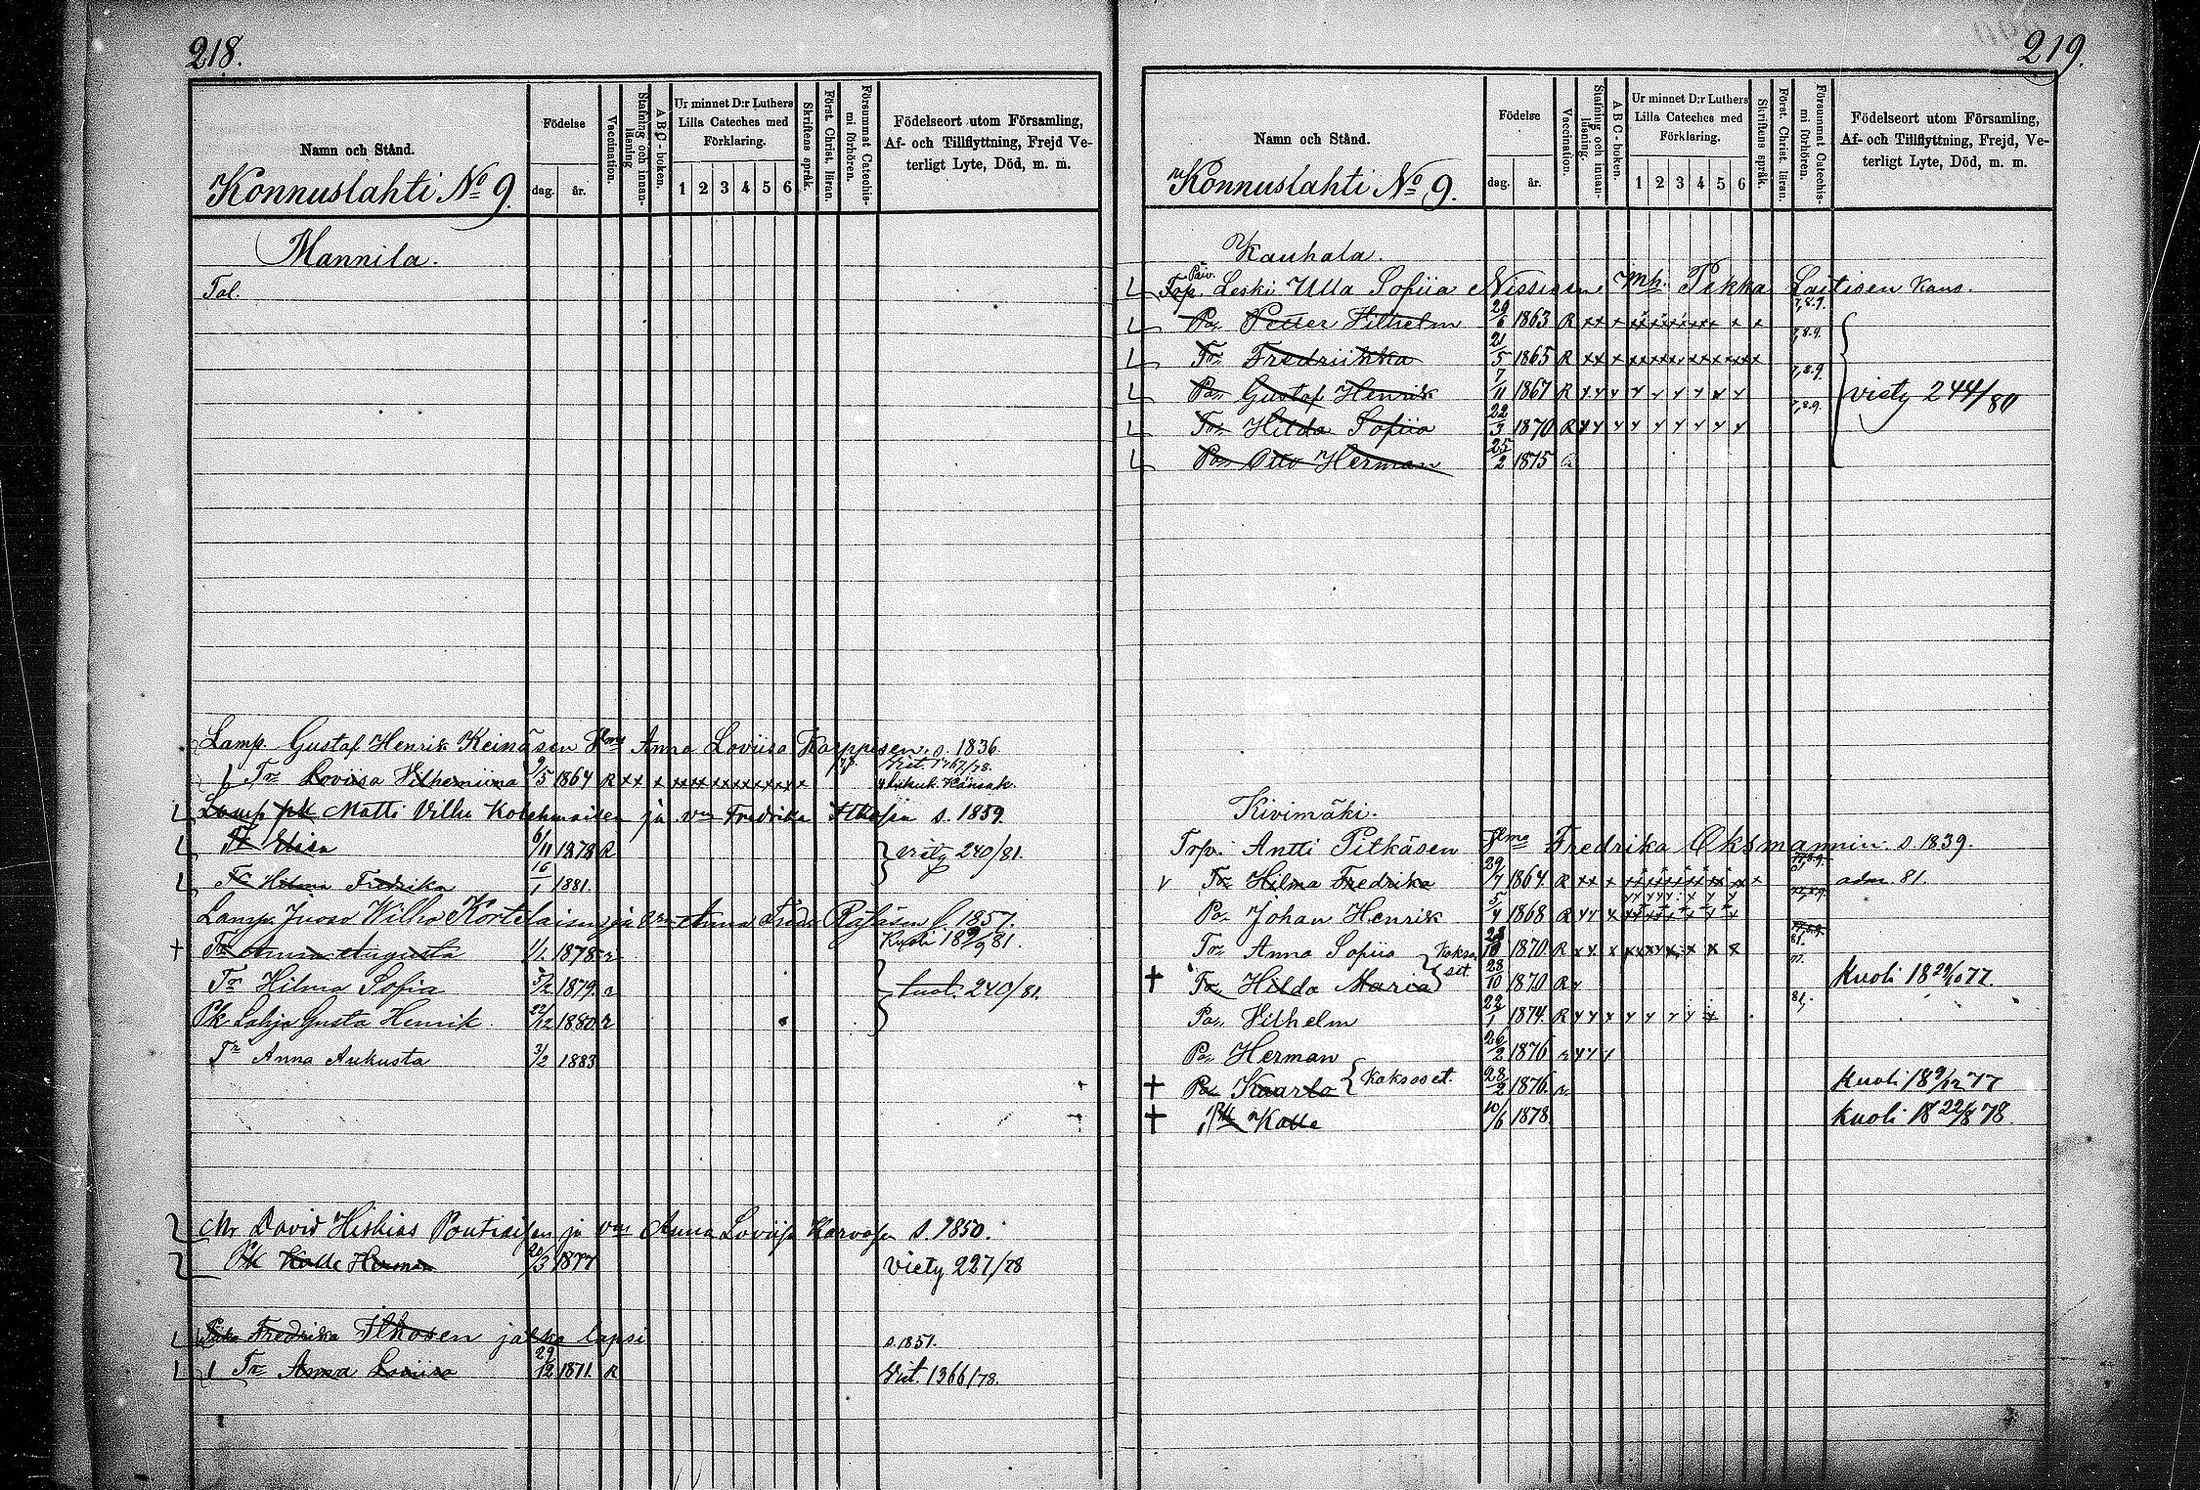 218.
Namn och Stånd.
Födelse
dag. år.
Vaccination.
Stafning och innanläsning
ABC-boken.
Ur minnet D:r Luthers Lilla Cateches med Förklaring.
1 2 3 4 5 6
Skriftens språk.
Först. Christ. läran.
Försummat Catechismi förhören.
Födelseort utom Församling, Af- och Tillflyttning, Frejd Veterligt Lyte, Död, m. m.
Konnuslahti No 9.
Mannila.
Tal.
Lamp. Gustaf Henrik Keinäsen Anna Loviisa Karppisen s. 1836.
Trit. 1767/78.
Tr Loviisa Vilhemiina 9/5 1864 R xx x xxxxxxxxxx
Lamp Matti Vilhu Kolehmaisen ja vm Fredrika s. 1859.
Tr Elisa 6/11 1878 R 240/81.
Tr Hilma Fredrika 16/1 1881.
Lamp. Juoso Wilho Kortelaisen ja vm Anna Fredr. Räsäsen f. 1857.
Tr Anna Augusta 1/1 1878 r Kuoli 18 9/9 81.
Tr Hilma Sofia 5/2 1879. r tuol. 240/81.
Pk Lahja Gusta Henrik 22/12 1880 r
Tr Anna Aukusta 3/2 1883
Mr David Hiskias Poutiaisen ja vm Anna Loviisa Karvosen s. 1850.
Pk Kalle Herman 20/3 1877 Viety 227/78
Fredrika Ilkosen jalka lapsi s. 1851.
Tr Anna Loviisa 29/12 1871. R Trit. 1366/78.
219.
Namn och Stånd.
Födelse
dag. år.
Vaccination.
Stafning och innanläsning.
ABC-boken.
Ur minnet D:r Luthers Lilla Cateches med Förklaring.
1 2 3 4 5 6
Skriftens språk.
Först. Christ. läran.
Försummat Catechismi förhören.
Födelseort utom Församling, Af- och Tillflyttning, Frejd, Veterligt Lyte, Död, m. m.
Konnuslahti No 9.
Kauhala.
Päiv.
Torp. Leski Ulla Sofiia Nissisen mh. Pekka Laitisen kans.
Po. Petter Vilhelm 29/6 1863 R xx x 7,8.9.
Tr. Fredriikka 21/5 1865 R xx x 7,8.9.
Po. Gustaf Henrik 7/11 1867 R 7,8.9. viety 244/80
Tr. Hilda Sofiia 22/3 1870 R 7,8.9.
Po. Otto Herman 25/2 1875
Kivimäki.
Trp. Antti Pitkäsen Fredrika Oksmannin s. 1839.
Tr. Hilma Fredrika 29/7 1864 R xx x adm 81.
Po. Johan Henrik 5/4 1868 R
Tr. Anna Sofiia Kaksoset. 28/10 1870 R 81.
Tr. Hilda Maria 28/10 1870 R Kuoli 18 29/10 77.
Po. Vilhelm 22/1 1874 R 81,
Po. Herman 26/2 1876
Po. Kaarlo Kaksoset. 28/2 1876 Kuoli 18 9/12 77
Pk Kalle 10/6 1878. Kuoli 18 22/8 78.